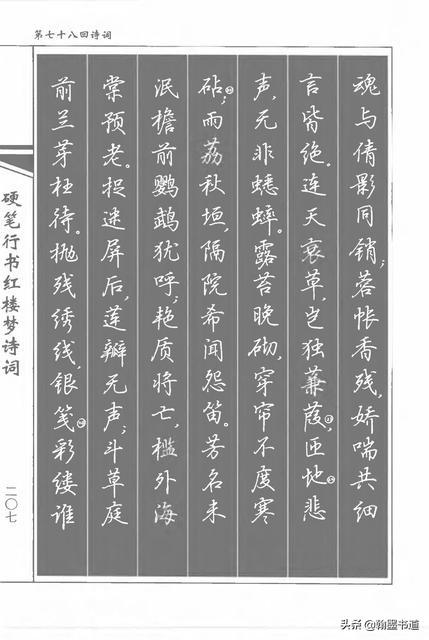 第七十八回诗词
魂与倩影同销;蓉帐香残,娇喘共细
言皆绝。连天衰草,岂独蒹葭,匝地悲
声,无非蟋蟀。露苔晚砌,穿帘不度寒
砧;雨荔秋垣,隔院希闻怨笛。芳名未
泯檐前鹦鹉犹呼;艳质将亡,槛外海
棠预老。捉迷屏后,莲瓣无声;斗草庭
前兰芽枉待。抛残绣线,银笺彩缕谁
硬笔行书红楼梦诗词
二〇七
头条@翰墨书道